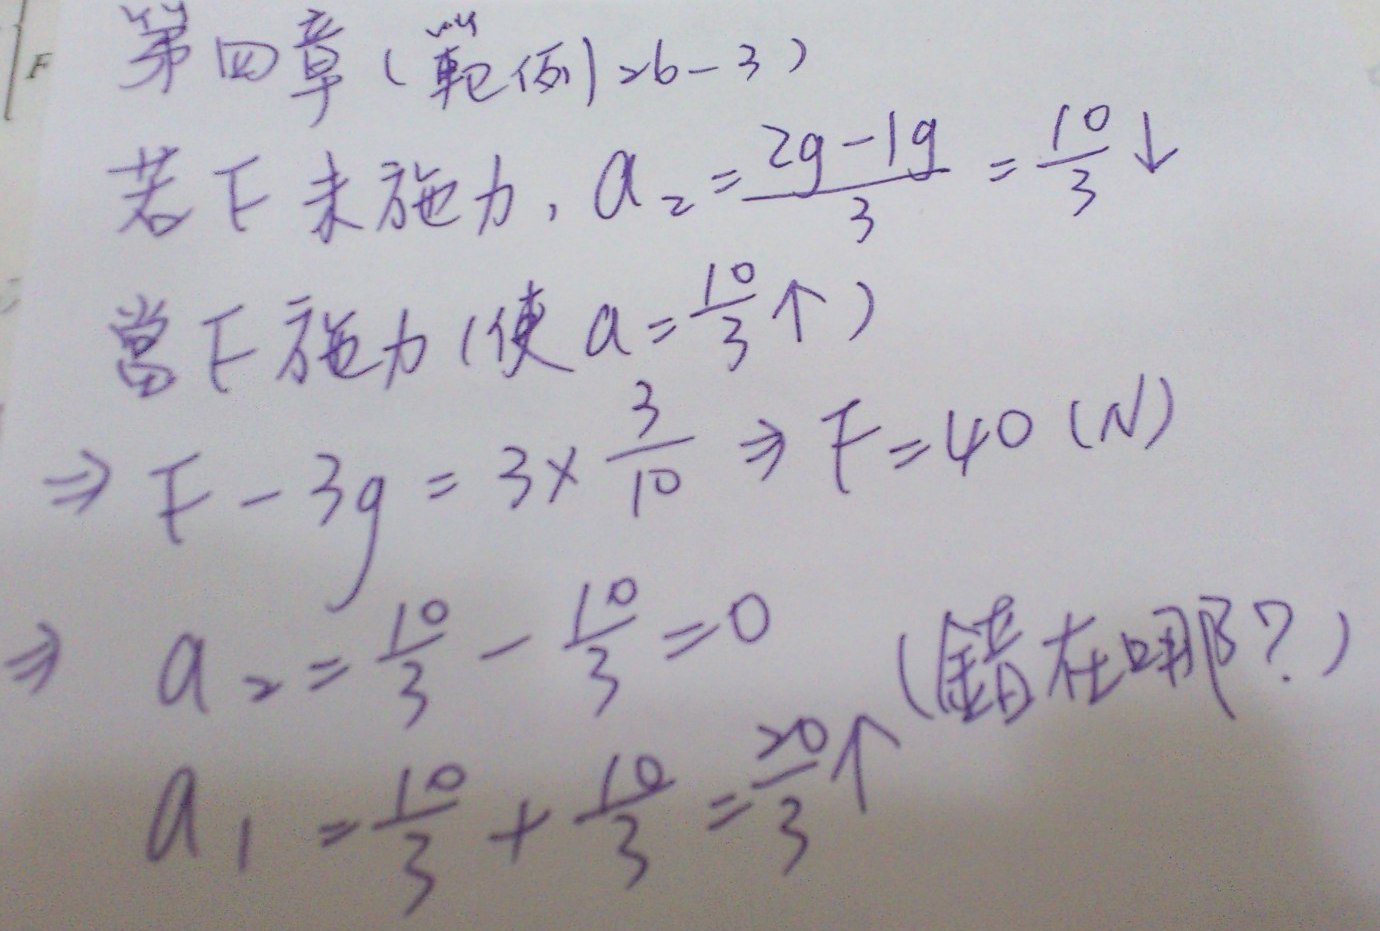 F
第四章(範例)26-3)
若F未施力,a₂=(2g-1g)/3=10/3↓
當F施力(使a=10/3↑)
⇒F-3g=3×3/10⇒F=40(N)
⇒a₂=10/3-10/3=0 (錯在哪?)
a₁=10/3+10/3=20/3↑